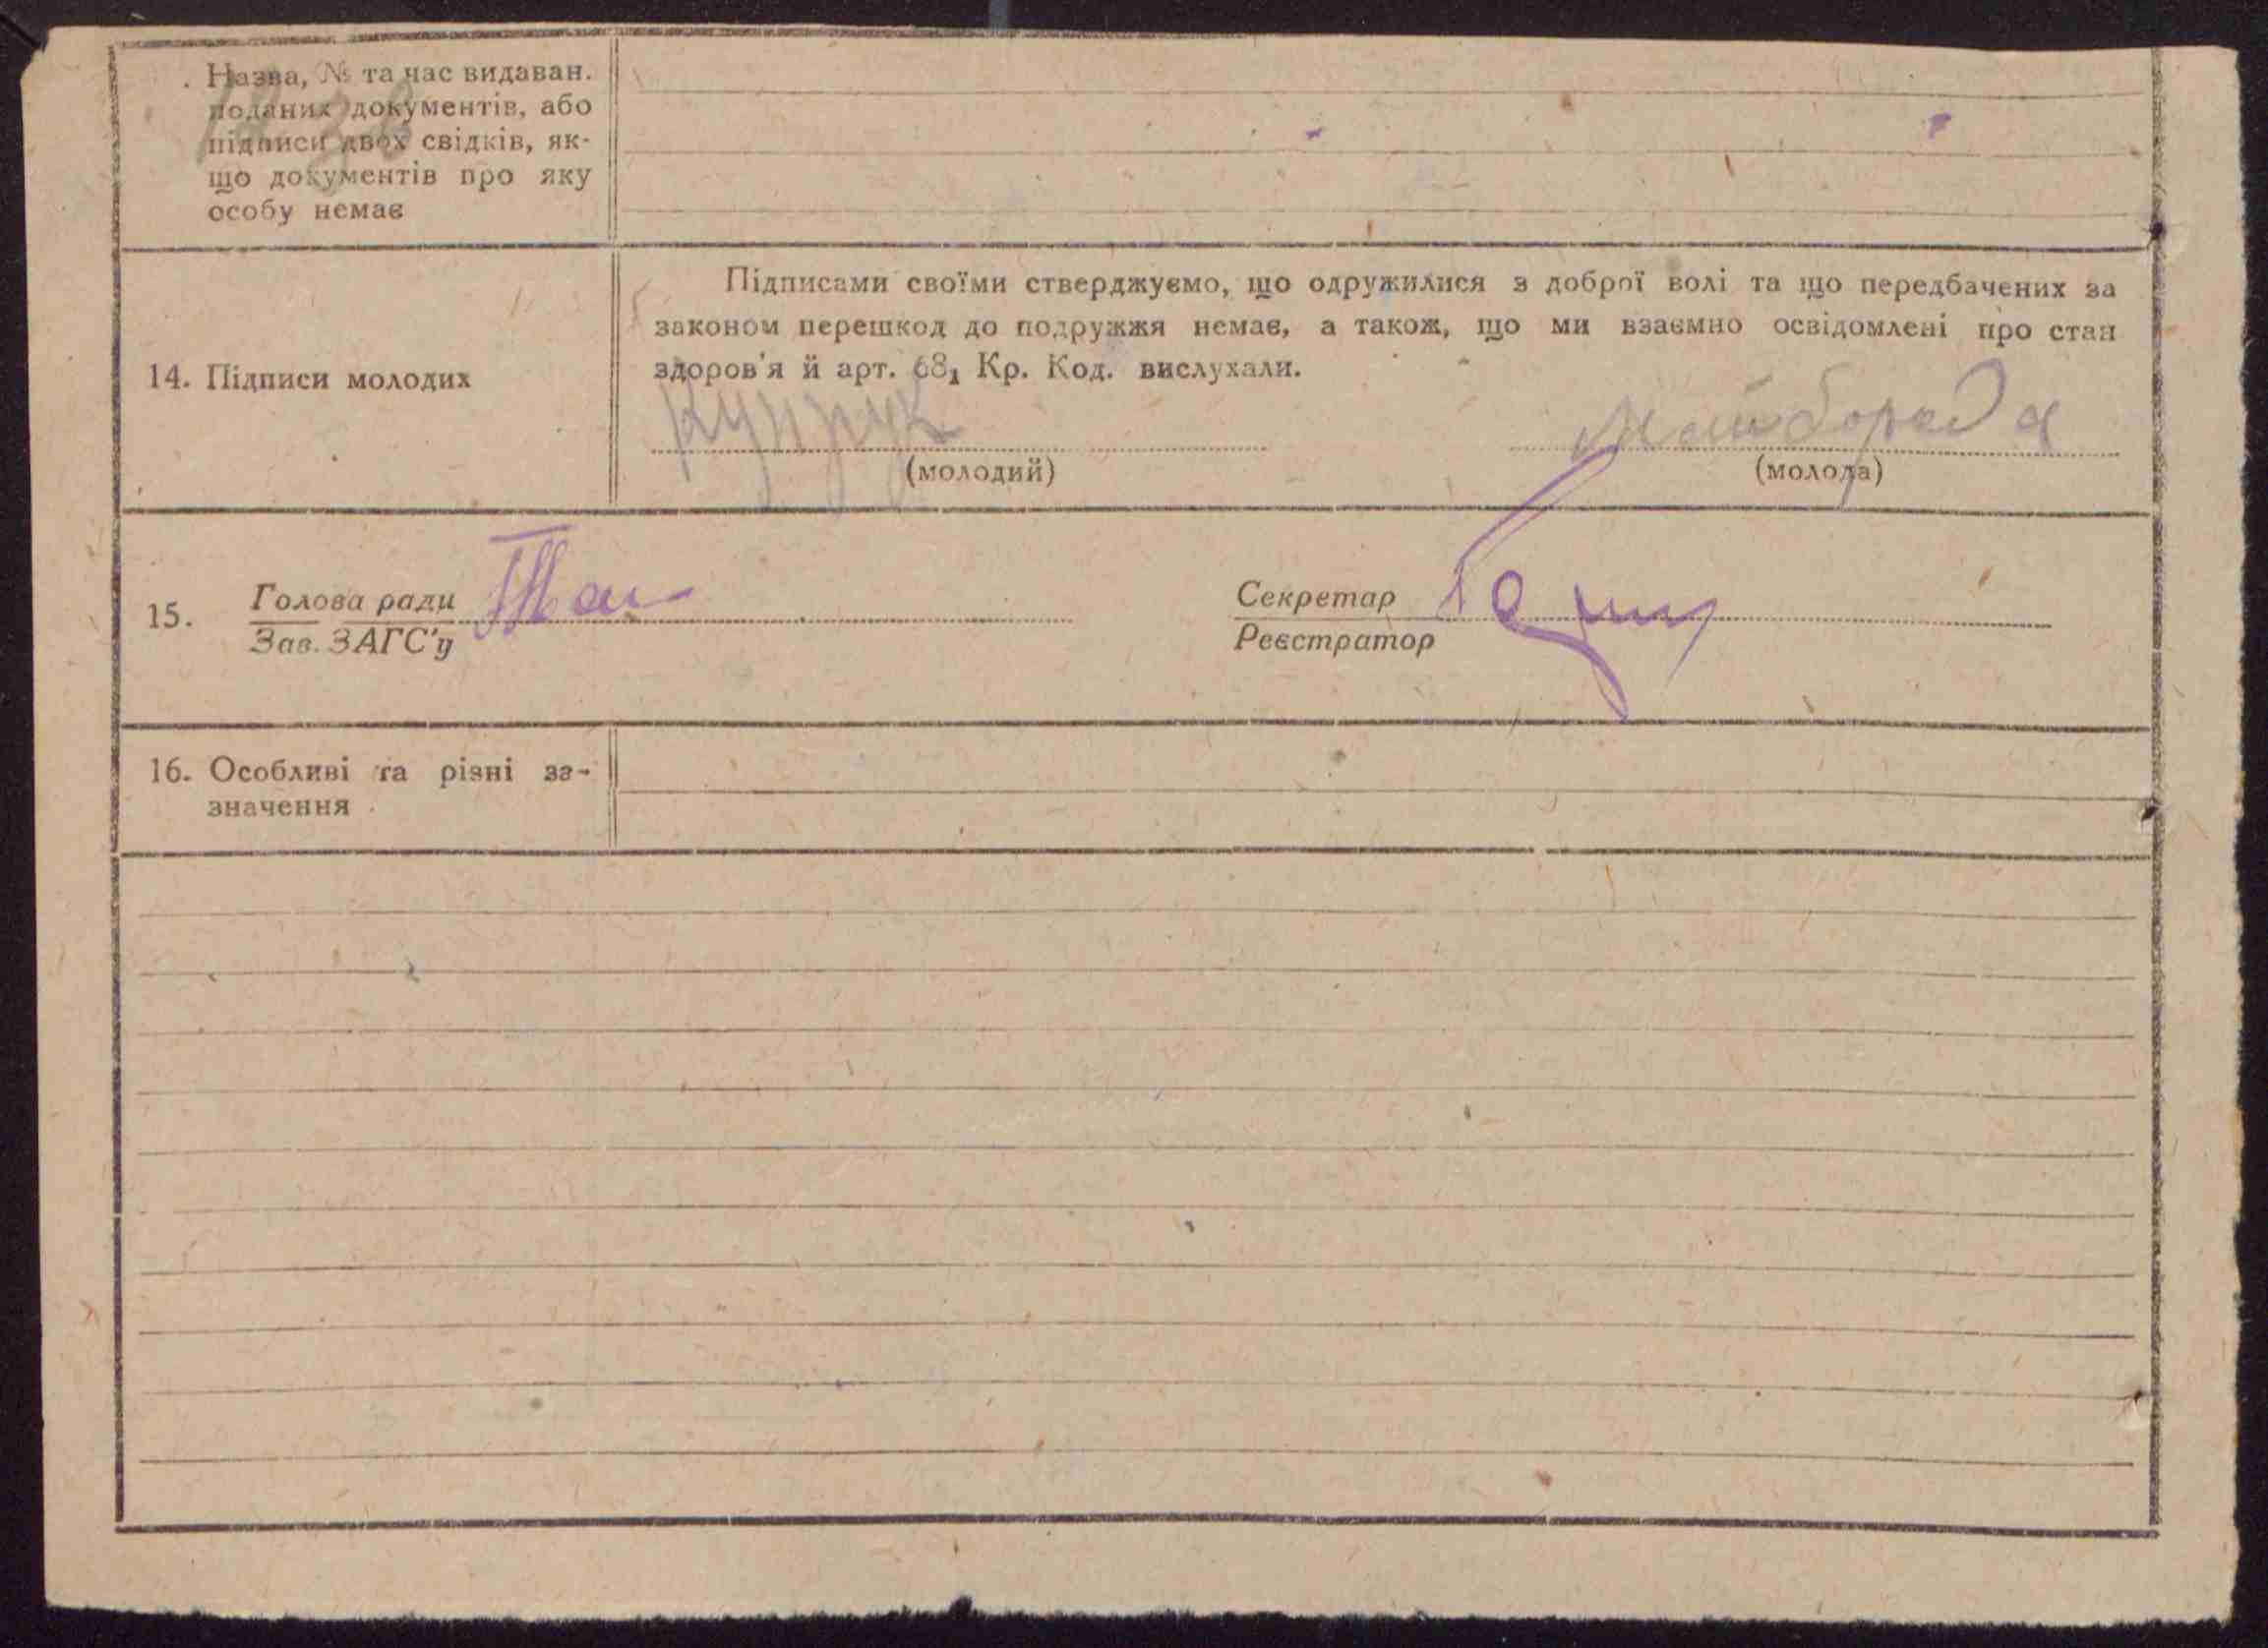 Назва, № та час видаван.
поданих документів, або
підписи двох свідків, як-
що документів про яку
особу немає
Підписами своїми стверджуємо, що одружилися з доброї волі та що передбачених за
законом перешкод до подружжя немає, а також, що ми взаємно освідомлені про стан
здоров'я й арт. 68₁ Кр. Код. вислухали.
14. Підписи молодих
Майборода
(молодий) (молода)
15. Голова ради
Зав. ЗАГС'у
Секретар
Реєстратор
16. Особливі та різні за-
значення